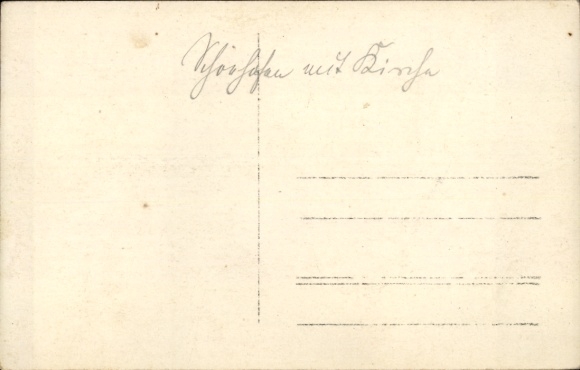 Schönhofen mit Kirche